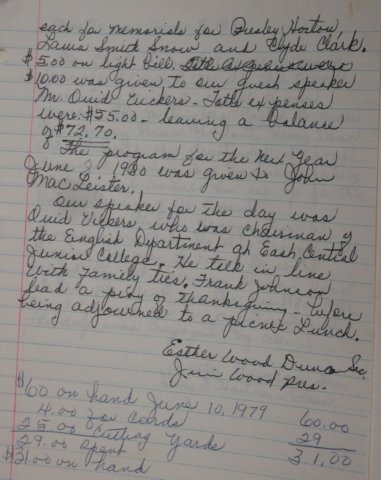 each for memorials for Busley Horton,
Laura Smith Snow and Clyde Clark.
$5.00 on light bill.
$10.00 was given to our guest speaker
Mr. Ouid Vickers - Total expenses
were $55.00 - leaving a balance
of $72.70.
The program for the New Year
June 1980 was given to John
MacLeister.
Our speaker for the day was
Ouid Vickers, who was chairman of
the English Department at East Central
Junior College. He talk in line
With Family ties. Frank Johnson
lead a pray of thanksgiving - before
being adjourned to a picnic Lunch.
Esther Wood Sec.
Jim Wood Pres.
$60 on hand June 10, 1979
4.00 for cards
25.00 Cutting Yards
29.00 spent
$31.00 on hand
60.00
29
31.00